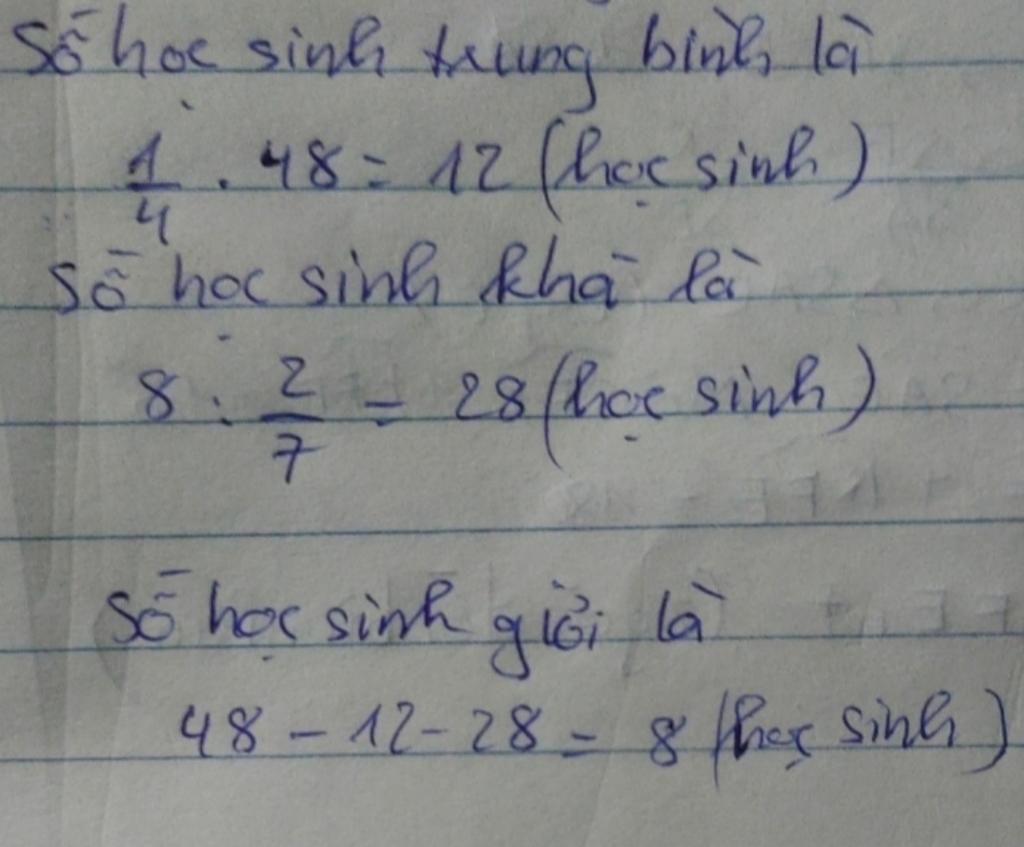 Số học sinh trung bình là
1/4 . 48 = 12 (học sinh)
Số học sinh khá là
8 : 2/7 = 28 (học sinh)
Số học sinh giỏi là
48 - 12 - 28 = 8 (học sinh)